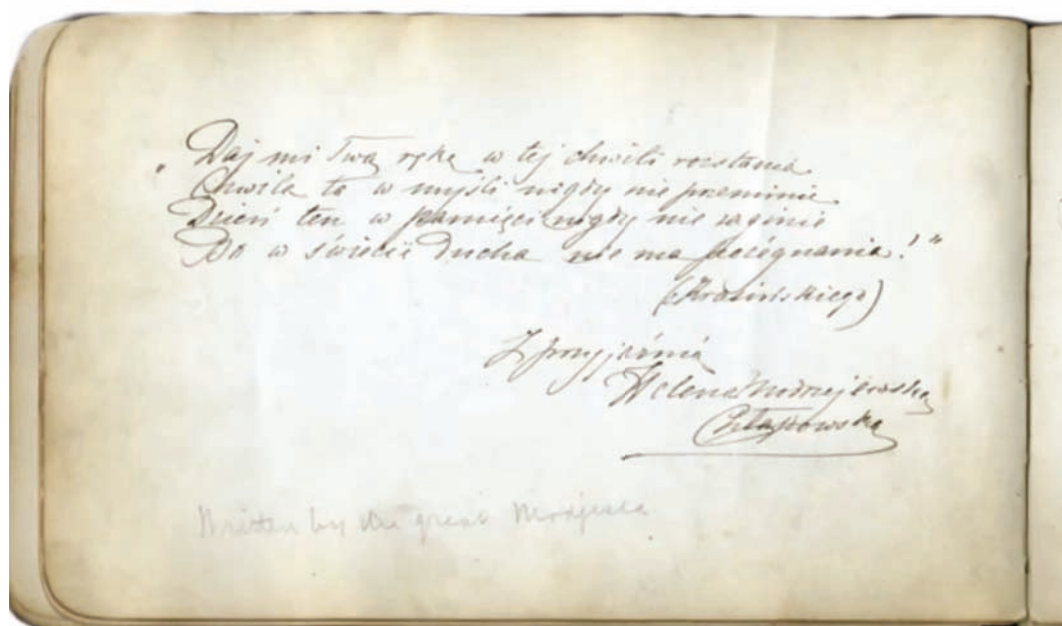 „Daj mi Twą rękę w tej chwili rozstania
Chwila ta w myśli nigdy nie przeminie
Dzień ten w pamięci nigdy nie zaginie
Bo w świecie Ducha nie ma pożegnania!"
(Krasińskiego)
Z przyjaźnią
Helena Modrzejewska
Chłapowska
Written by the great Modjeska